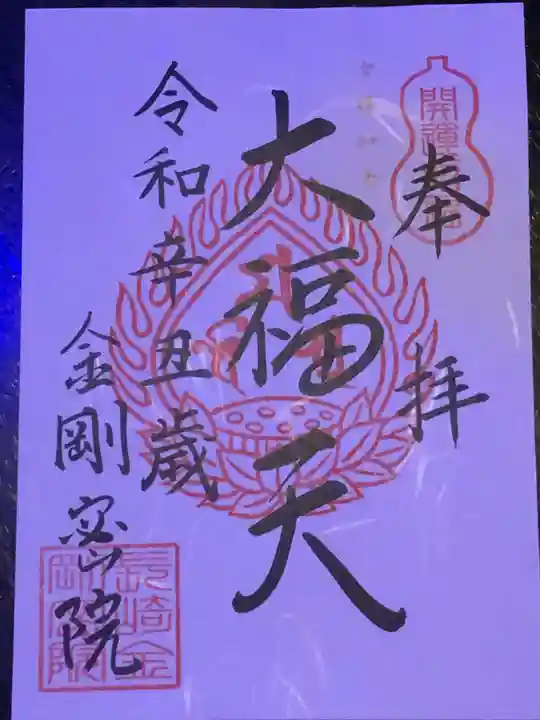 奉拝
開運
大福天
令和辛丑歳
金剛密院
長崎金剛
院